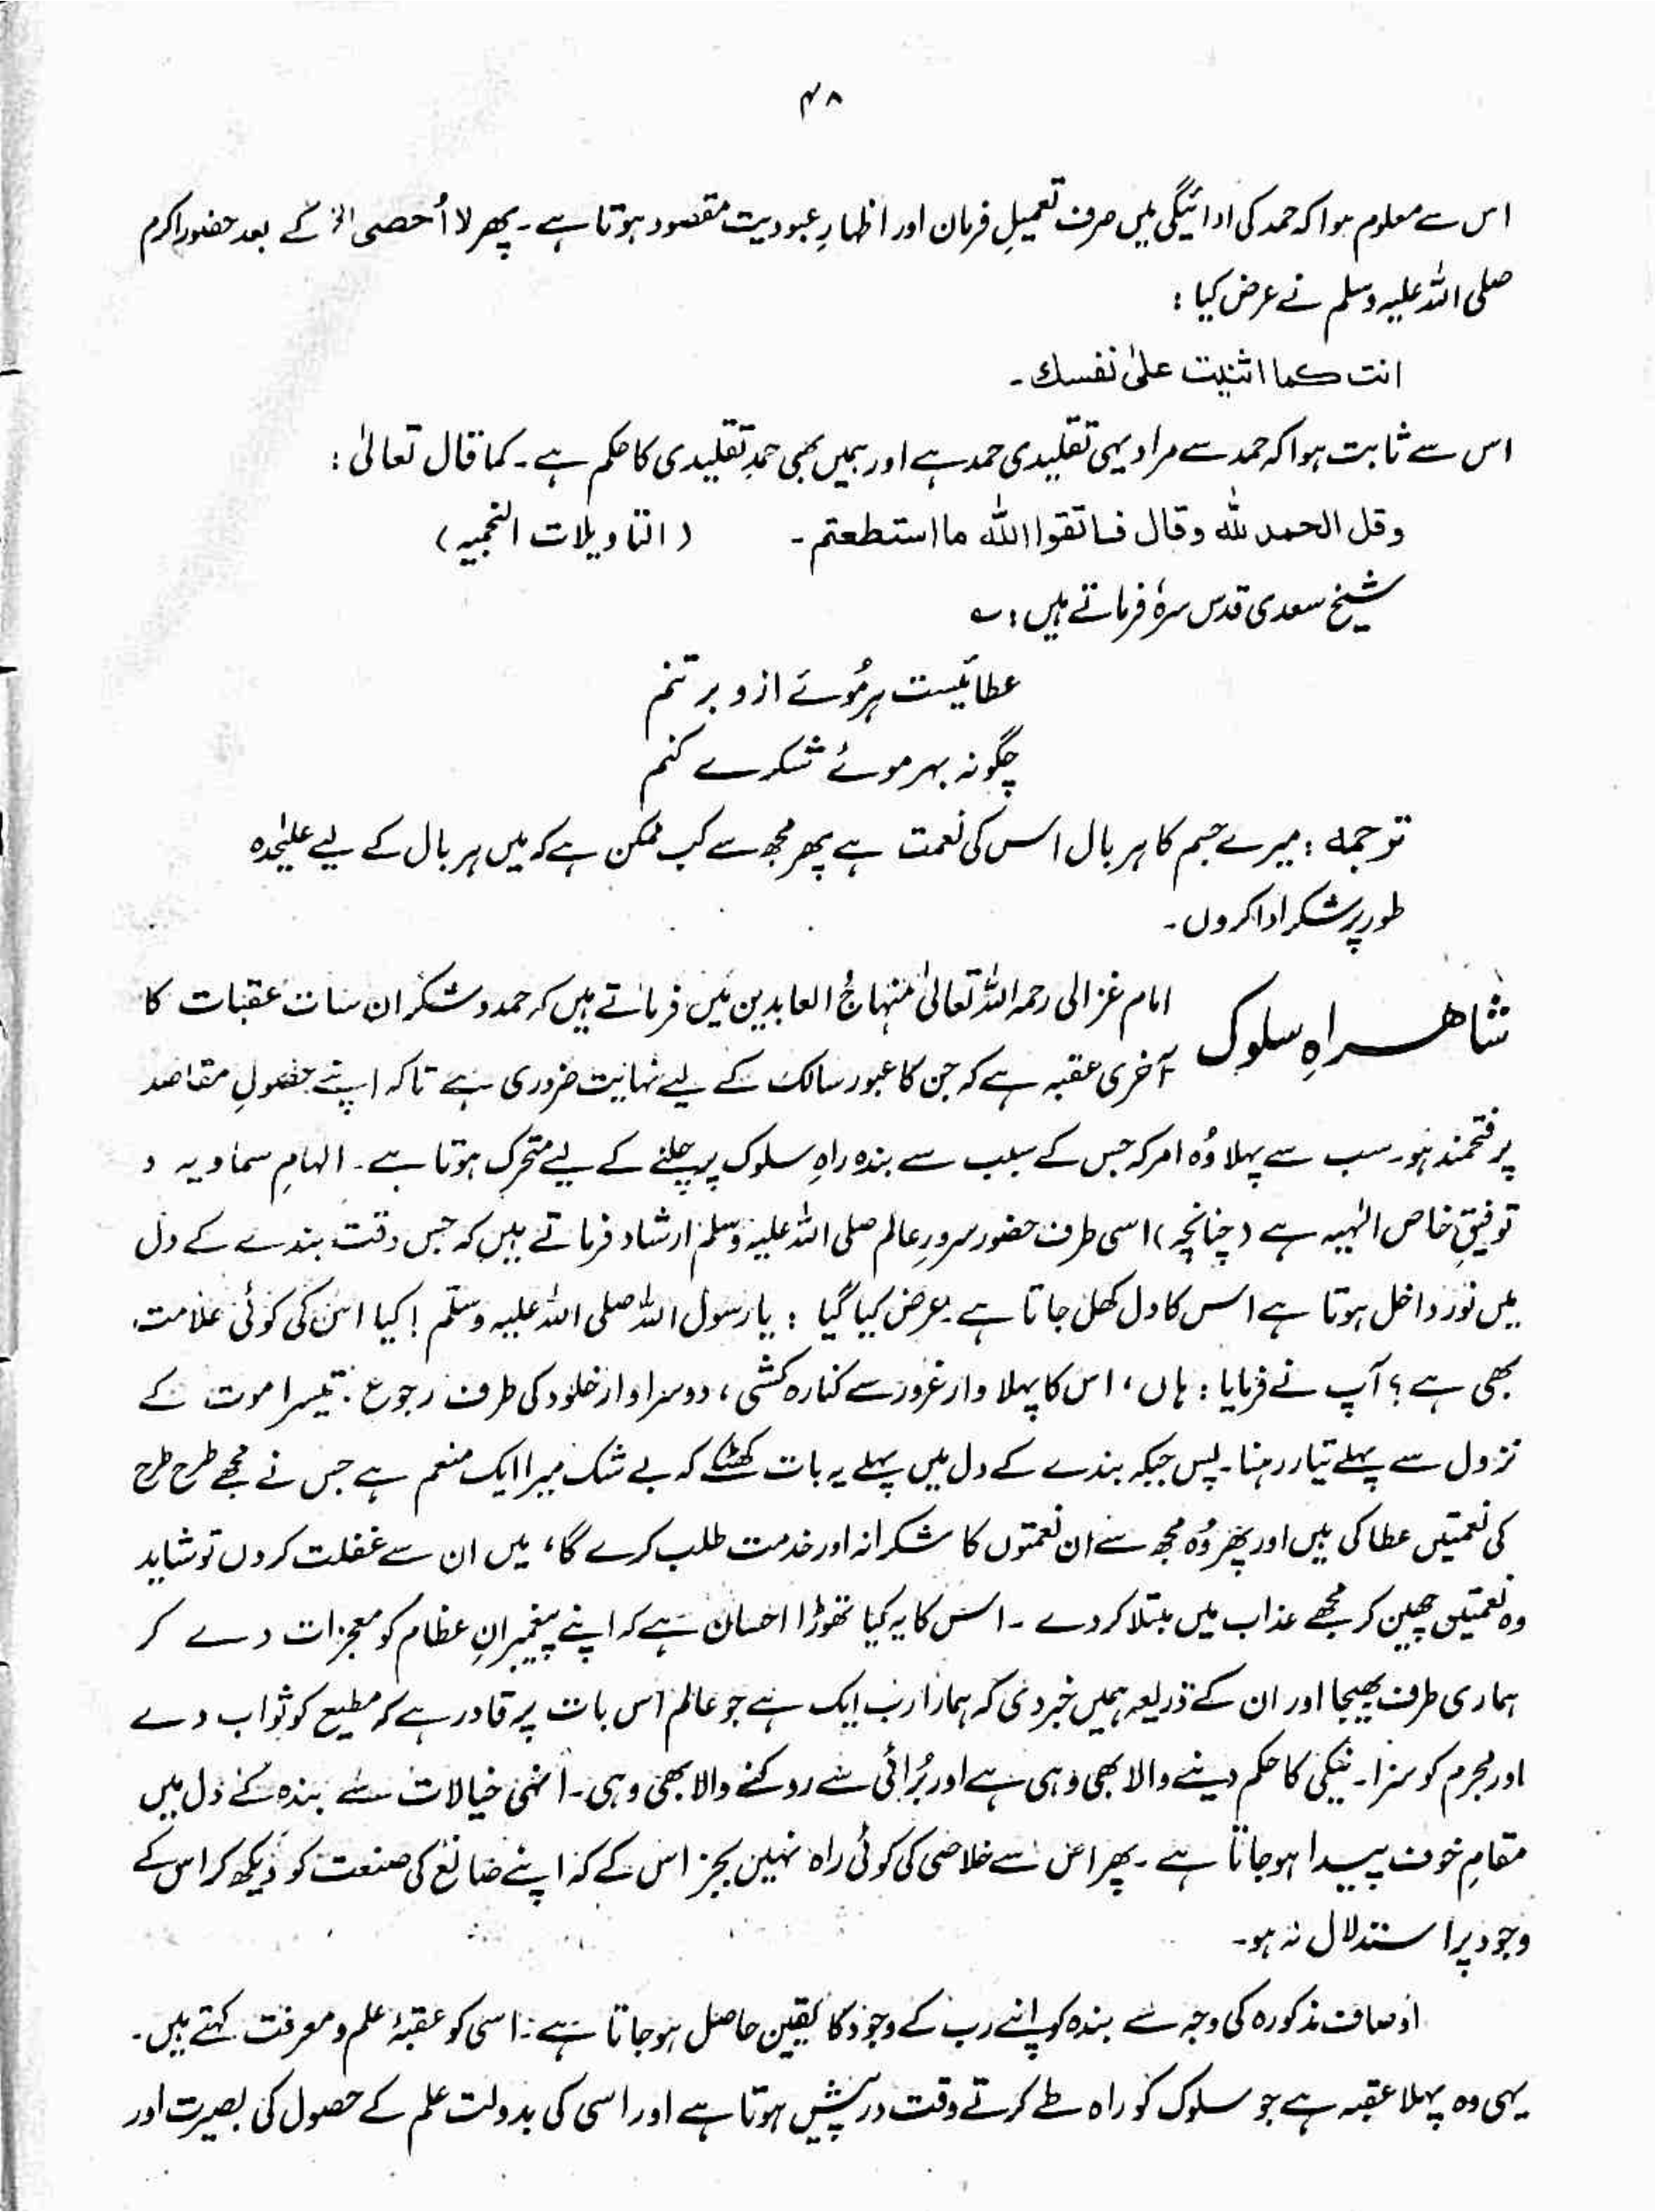 ۴۸
اس سے معلوم ہوا کہ حمد کی ادائیگی میں صرف تعمیلِ فرمان اور اظہارِ عبودیت مقصود ہوتا ہے۔ پھر لا اُحصی الخ کے بعد حضور اکرم
صلی اللہ علیہ وسلم نے عرض کیا :
انت كما اثنيت علىٰ نفسك ۔
اس سے ثابت ہوا کہ حمد سے مراد یہی تقلیدی حمد ہے اور ہمیں بھی حمدِ تقلیدی کا حکم ہے۔ کما قال تعالیٰ :
وقل الحمد لله وقال فاتقوا الله ما استطعتم ۔ (التاویلات النجمیہ)
شیخ سعدی قدس سرہٗ فرماتے ہیں : ؎
عطائیست ہر مُوئے ازو بر تنم
چگونہ بہر موئے شکرے کنم
ترجمہ : میرے جسم کا ہر بال اس کی نعمت ہے پھر مجھ سے کب ممکن ہے کہ میں ہر بال کے لیے علیٰحدہ
طور پر شکر ادا کروں۔
شاھراہِ سلوک امام غزالی رحمہ اللہ تعالیٰ منہاجُ العابدین میں فرماتے ہیں کہ حمد و شکر ان سات عقبات کا
آخری عقبہ ہے کہ جن کا عبور سالک کے لیے نہایت ضروری ہے تاکہ اپنے حصولِ مقاصد
پر فتحمند ہو۔ سب سے پہلا وُہ امر کہ جس کے سبب سے بندہ راہِ سلوک پر چلنے کے لیے متحرک ہوتا ہے۔ الہامِ سماویہ و
توفیقِ خاص الٰہیہ ہے (چنانچہ) اسی طرف حضور سرورِ عالم صلی اللہ علیہ وسلم ارشاد فرماتے ہیں کہ جس وقت بندے کے دل
میں نور داخل ہوتا ہے اس کا دل کھل جاتا ہے عرض کیا گیا : یا رسول اللہ صلی اللہ علیہ وسلّم ! کیا اس کی کوئی علامت
بھی ہے ؟ آپ نے فرمایا : ہاں ، اس کا پہلا دار غرور سے کنارہ کشی ، دوسرا دار خلود کی طرف رجوع ۔ تیسرا موت کے
نزول سے پہلے تیار رہنا۔ پس جبکہ بندے کے دل میں پہلے یہ بات کھٹکے کہ بے شک میرا ایک منعم ہے جس نے مجھے طرح طرح
کی نعمتیں عطا کی ہیں اور پھر وُہ مجھ سے ان نعمتوں کا شکرانہ اور خدمت طلب کرے گا ، میں ان سے غفلت کروں تو شاید
وہ نعمتیں چھین کر مجھے عذاب میں مبتلا کر دے ۔ اس کا یہ کیا تھوڑا احسان ہے کہ اپنے پیغمبرانِ عظام کو معجزات دے کر
ہماری طرف بھیجا اور ان کے ذریعہ ہمیں خبر دی کہ ہمارا رب ایک ہے جو عالم اس بات پر قادر ہے کہ مطیع کو ثواب دے
اور مجرم کو سزا۔ نیکی کا حکم دینے والا بھی وہی ہے اور بُرائی سے روکنے والا بھی وہی ۔ انہی خیالات سے بندہ کے دل میں
مقامِ خوف پیدا ہو جاتا ہے ۔ پھر اس سے خلاصی کی کوئی راہ نہیں بجز اس کے کہ اپنے صانع کی صنعت کو دیکھ کر اس کے
وجود پر استدلال نہ ہو۔
اوصاف مذکورہ کی وجہ سے بندہ کو اپنے رب کے وجود کا یقین حاصل ہو جاتا ہے ۔ اسی کو عقبۂ علم و معرفت کہتے ہیں ۔
یہی وہ پہلا عقبہ ہے جو سلوک کو راہ طے کرتے وقت درپیش ہوتا ہے اور اسی کی بدولت علم کے حصول کی بصیرت اور